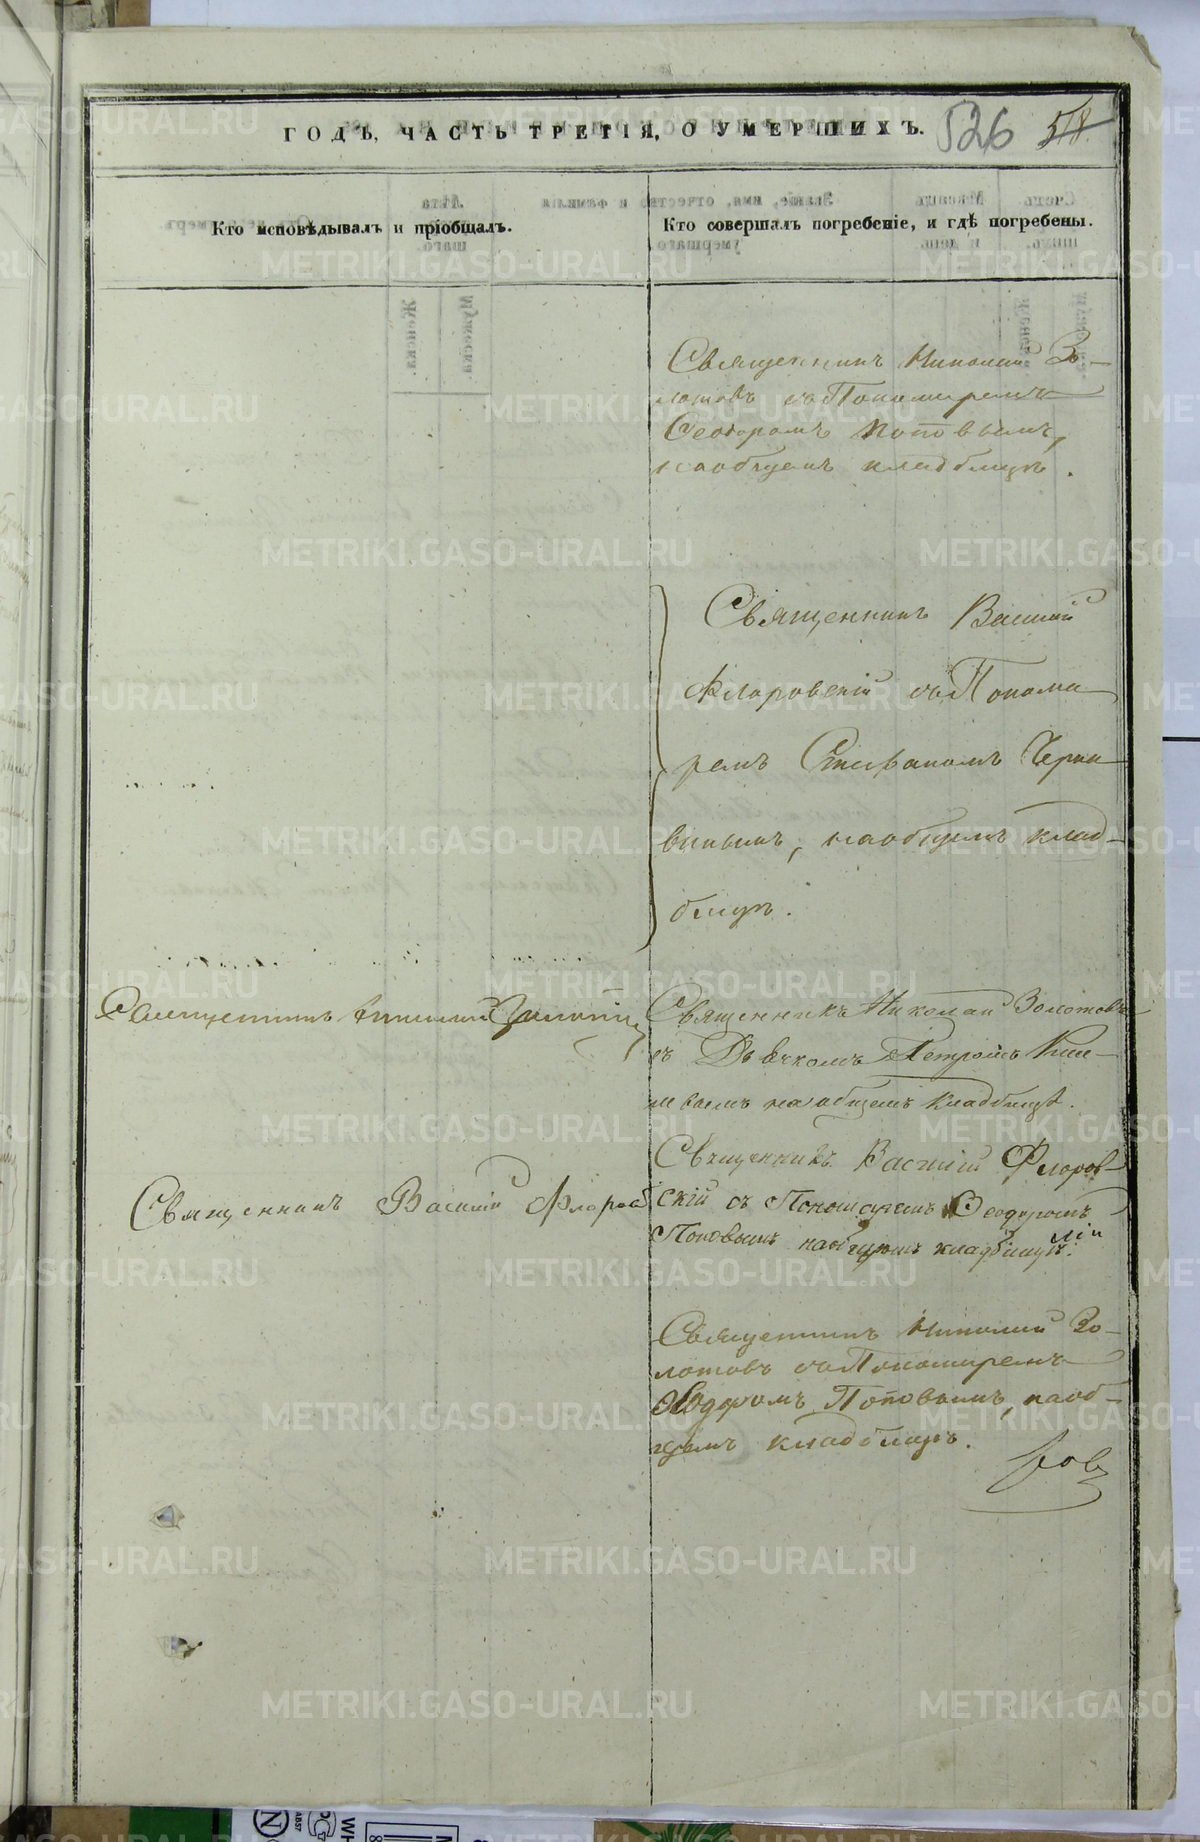 ГОДЪ, ЧАСТЬ ТРЕТІЯ, О УМЕРШИХЪ.
526
518.
Кто исповѣдывалъ и пріобщалъ.
Кто совершалъ погребеніе, и гдѣ погребены.
Священникъ Николай Зо-
лотовъ съ Пономаремъ
Ѳеодоромъ Поповымъ,
на общемъ кладбищѣ.
Священникъ Василій
Флоровскій съ Понома
ремъ Стефаномъ
на общемъ клад-
бищѣ.
Священникъ
Священникъ Николай Золотовъ
съ Дьячкомъ Петромъ
на общемъ кладбищѣ.
Священникъ Василій Флоров-
Священникъ Василій Флоров
скій съ Пономаремъ Ѳеодоромъ
Поповымъ на общемъ кладбищѣ.
Священникъ Николай Зо-
лотовъ съ Пономаремъ
Ѳеодоромъ Поповымъ, на об-
щемъ кладбищѣ.
METRIKI.GASO-URAL.RU